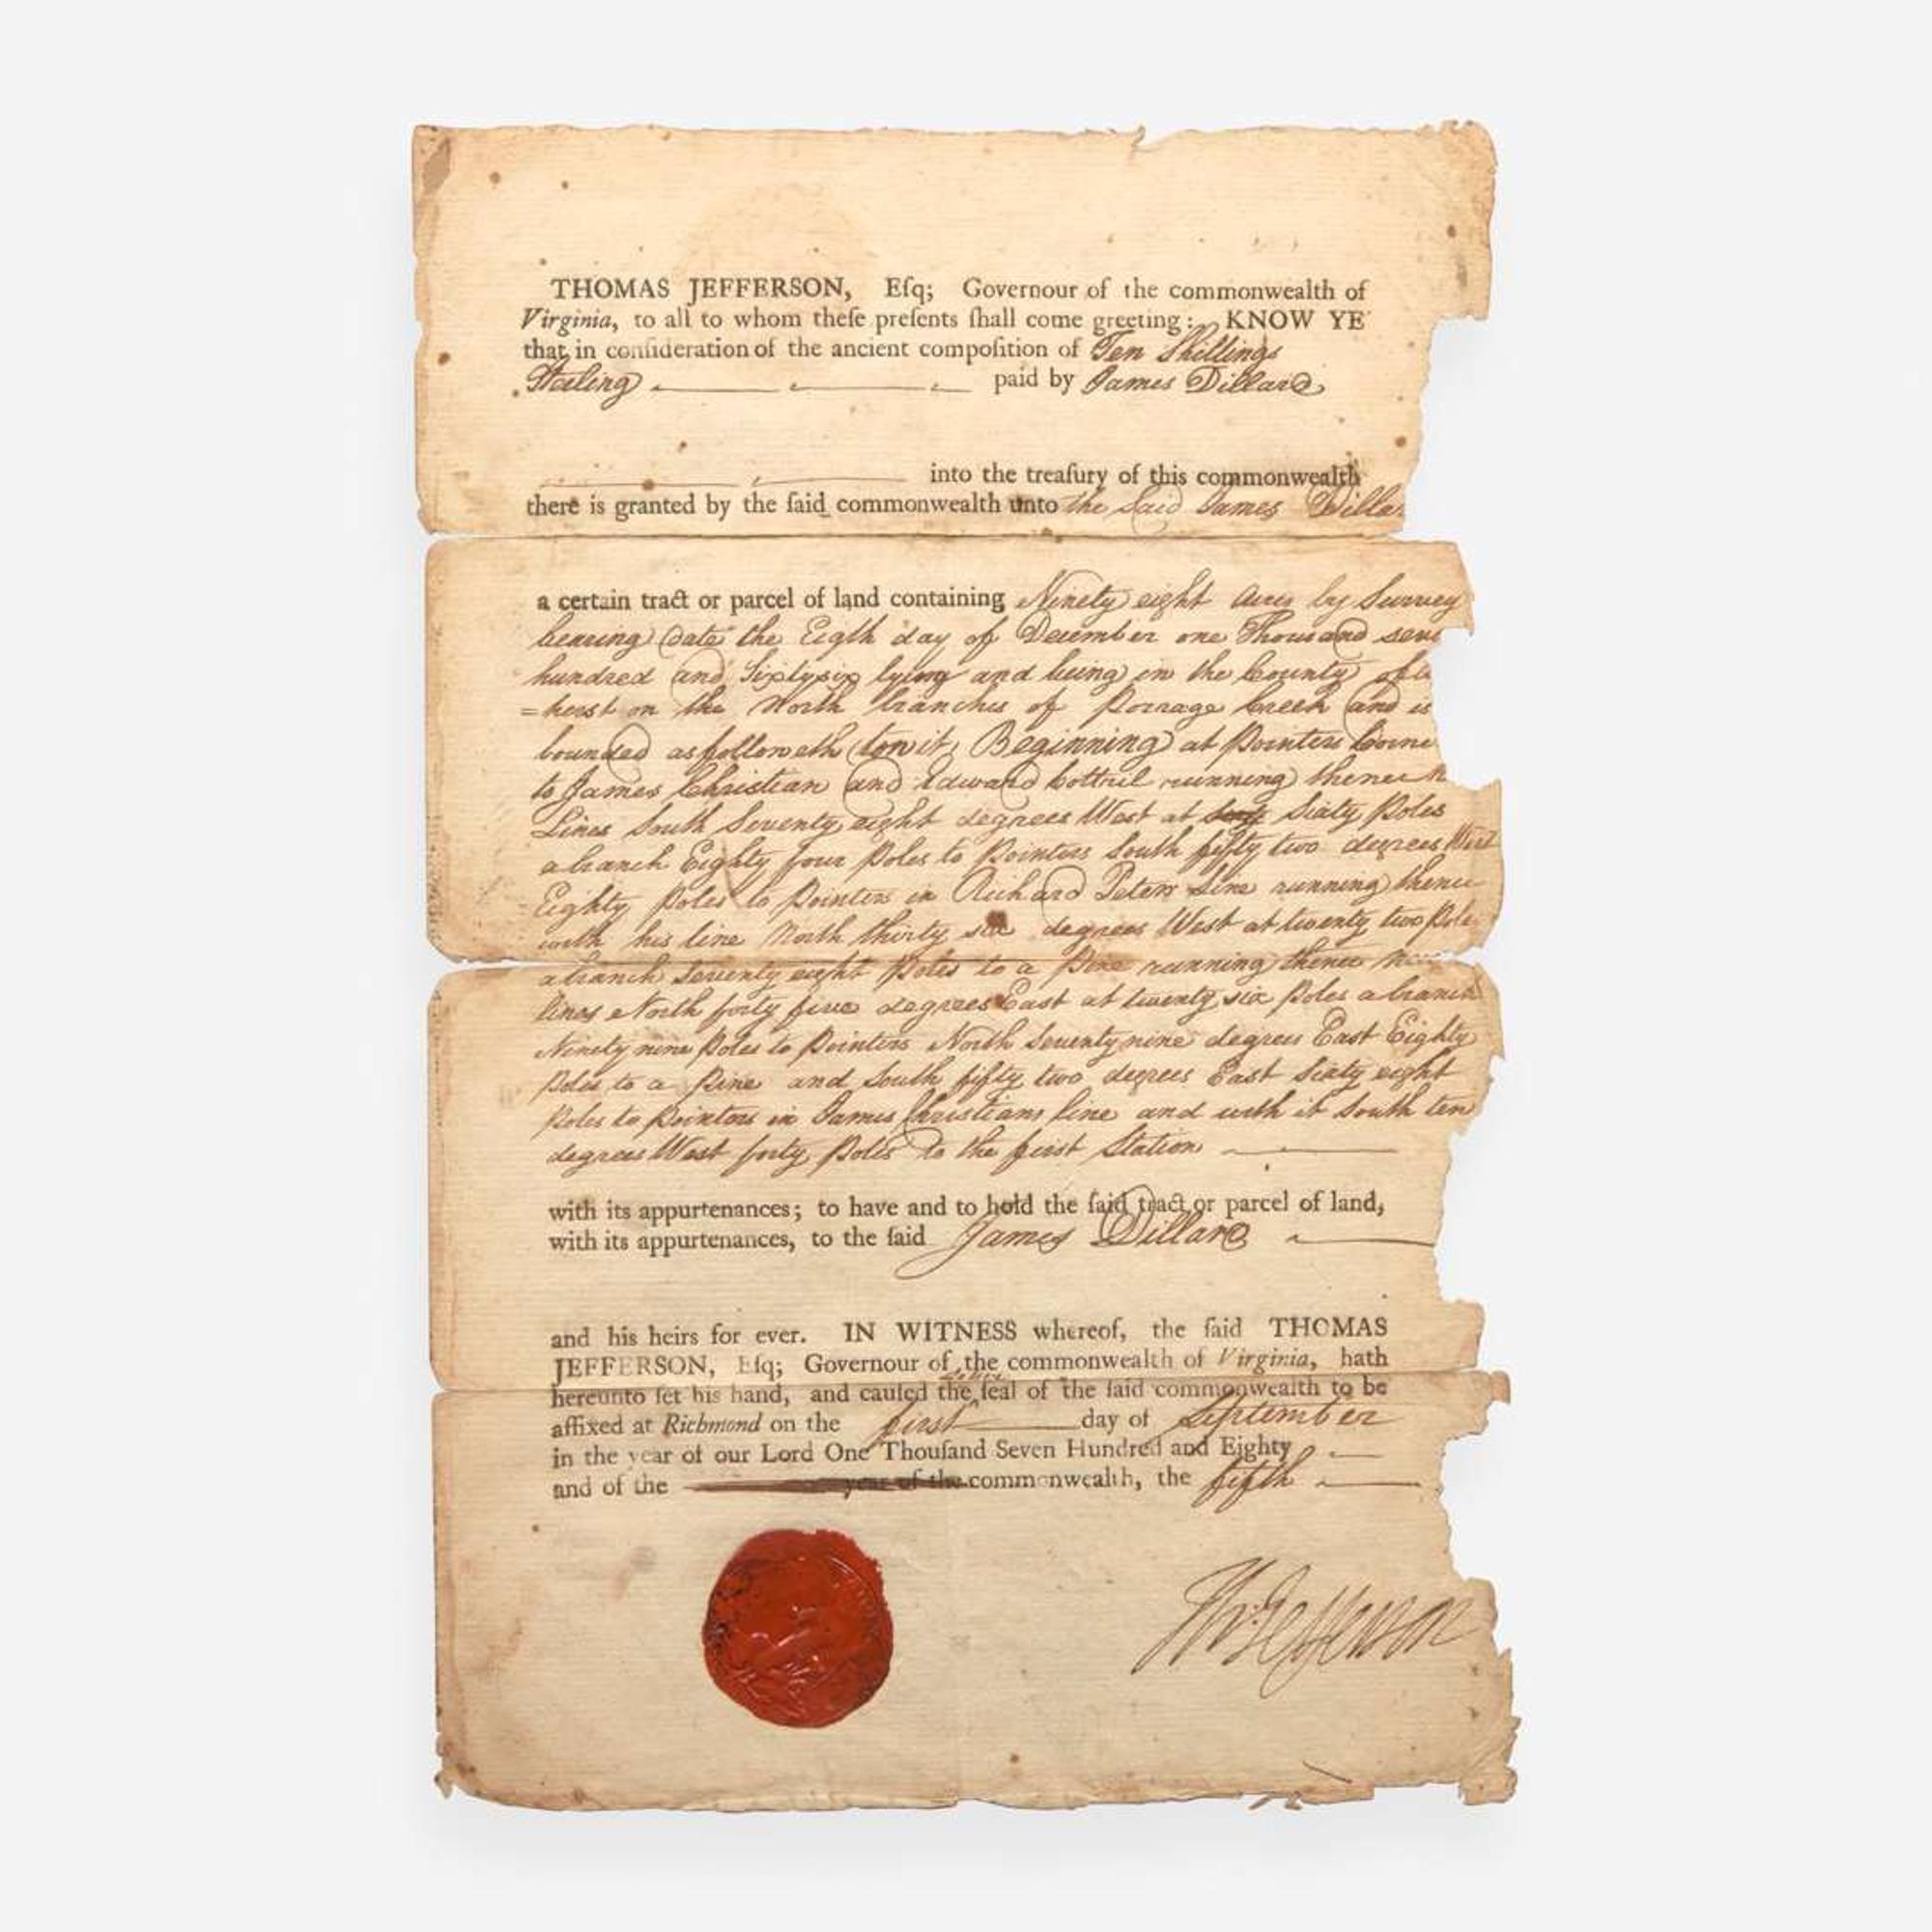 THOMAS JEFFERSON, Eſq; Governour of the commonwealth of
Virginia, to all to whom theſe preſents ſhall come greeting: KNOW YE
that in conſideration of the ancient compoſition of Ten Shillings
Sterling paid by James Dillard
into the treaſury of this commonwealth
there is granted by the ſaid commonwealth unto the Said James Dilla
a certain tract or parcel of land containing Ninety eight Acres by Survey
bearing date the Eigth day of December one Thousand seve
hundred and Sixty six lying and being in the County of
=herst on the North branches of Porrage Creek and is
bounded as followeth (towit) Beginning at Pointers Corne
to James Christian and Edward Cottril running thence
Lines South Seventy eight degrees West at Sixty Poles
a branch Eighty four Poles to Pointers South fifty two degrees West
Eighty Poles to Pointers in Richard Peters Line running thence
with his line North thirty six degrees West at twenty two Poles
a branch Seventy eight Poles to a Pine running thence
lines North forty five degrees East at twenty six Poles a branch
Ninety nine Poles to Pointers North Seventy nine degrees East Eighty
Poles to a Pine and South fifty two degrees East Sixty eight
Poles to Pointers in James Christians line and with it South ten
degrees West forty Poles to the first Station
with its appurtenances; to have and to hold the ſaid tract or parcel of land,
with its appurtenances, to the ſaid James Dillard
and his heirs for ever. IN WITNESS whereof, the ſaid THOMAS
JEFFERSON, Eſq; Governour of the commonwealth of Virginia, hath
hereunto ſet his hand, and cauſed the ſeal of the ſaid commonwealth to be
affixed at Richmond on the first day of September
in the year of our Lord One Thouſand Seven Hundred and Eighty
and of the year of the commonwealth, the fifth
Th: Jefferson